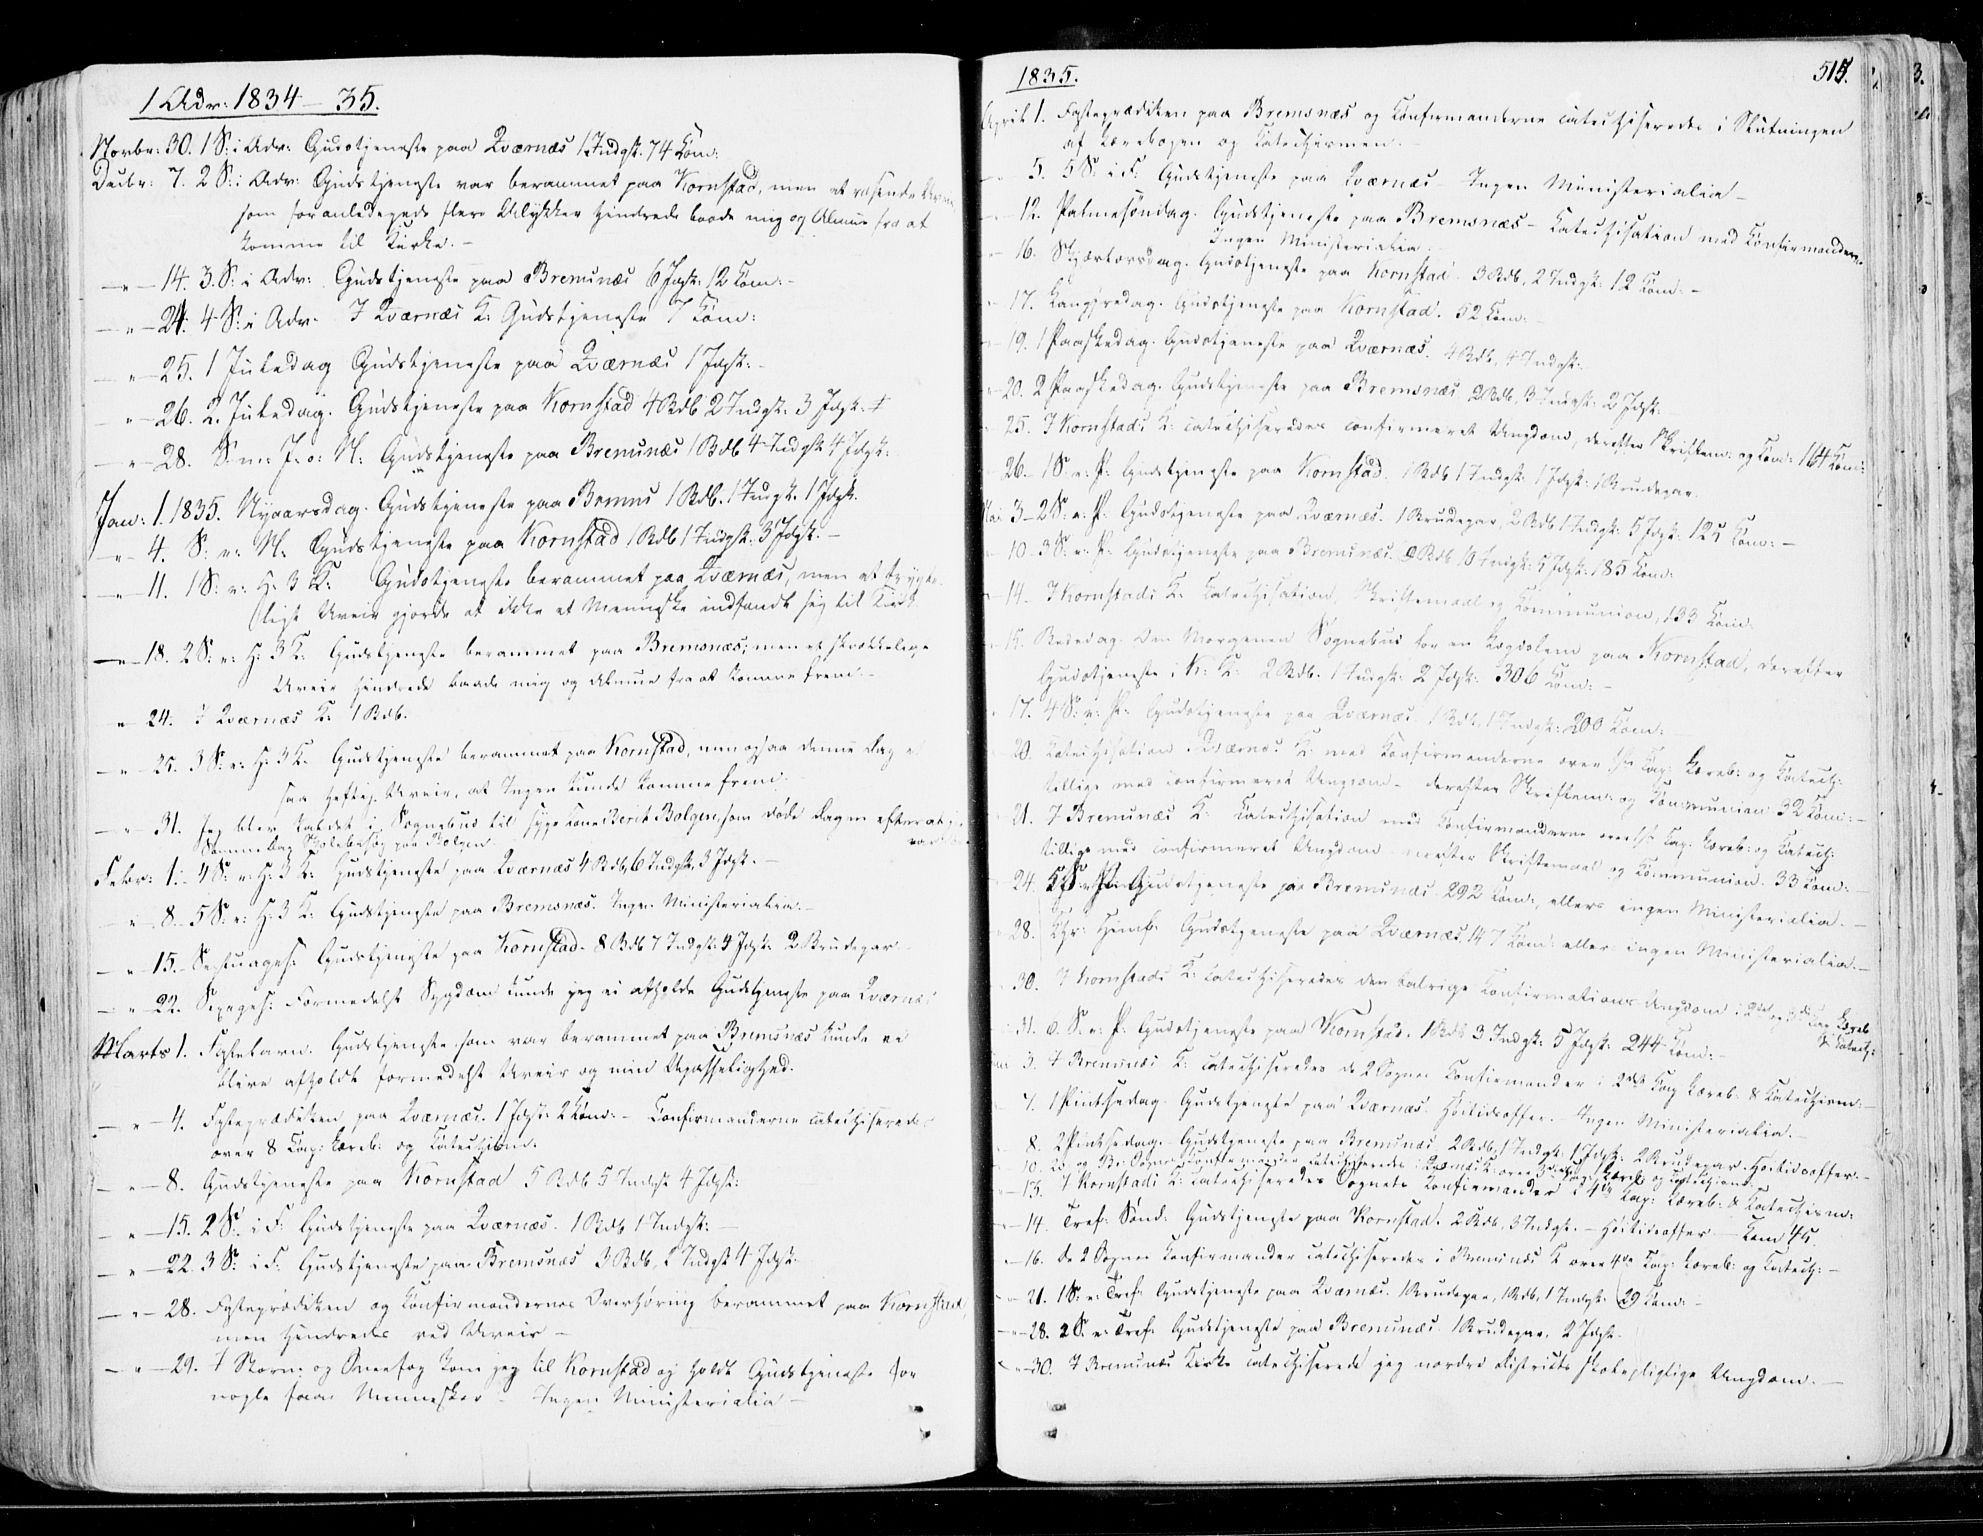 1 Adv: 1834 – 35.
Novbr: 30. 1 S: i Adv: Gudstjeneste paa Qværnæs 1 Indgk. 74 Com:
Decbr: 7. 2 S: i Adv: Gudstjeneste var berammet paa Kornstad, men et rasende
som foranledigede flere Ulykker hindrede baade mig og Almue fra at
komme til Kirke. –
–"– 14. 3. S: i Adv: Gudstjeneste paa Bremsnæs 6 Jdgk: 12 Com: –
–"– 24. 4 S: i Adv. I Qværnæs K: Gudstjeneste 7 Com:
–"– 25. 1 Juledag Gudstjeneste paa Qværnæs 1 Jdgk: –
–"– 26. 2. Juledag. Gudstjeneste paa Kornstad 4 Bdb 2 Indgk: 3 Jdgk:
–"– 28. S. m: J. o: N: Gudstjeneste paa Bremsnæs 1 Bdb 4 Indgk 4 Jdgk:
Jan: 1. 1835. Nyaarsdag. Gudstjeneste paa Bremsnæs 1 Bdb. 1 Indgk. 1 Jdgk.
–"– 4. S: e: N: Gudstjeneste paa Kornstad 1 Bdb 1 Indgk: 3 Jdgk. –
–"– 11. 1 S: e: H: 3 K: Gudstjeneste berammet paa Qværnæs, men et frygte
ligt Uveir gjorde at ikke et Menneske indfandt sig til Kirke
–"– 18. 2 S: e: H: 3 K: Gudstjeneste berammet paa Bremsnæs; men et skrækkelige
Uveir hindrede baade mig og Almue fra at komme frem. –
"– 24. I Qværnæs K: 1 Bdb.
–"– 25. 3 S: e: H: 3 K. Gudstjeneste berammet paa Kornstad, men ogsaa denne Dag
saa heftig Uveir, at Ingen kunde komme frem.
–"– 31. Jeg blev kaldet i Sognebud til syge Kone Berit Bolgen, som døde Dagen efterat jeg
Sammedag Skolebesøg paa Bolgen.
Febr: 1. – 4 S: e: H: 3 K: Gudstjeneste paa Qværnæs 4 Bdb, 6 Indgk, 3 Jdgk. –
–"– 8. 5 S: e: H: 3 K: Gudstjeneste paa Bremsnæs. Ingen Ministerialia. –
–"– 15. – Septuages: Gudstjeneste paa Kornstad – 8 Bdb 7 Indgk: 4 Jdgk: 2 Brudepar –
–"– 22. Sexages: Formedelst Sygdom kunde jeg ei afholde Gudstjeneste paa Qværnæs
Marts 1. Fastelavn. Gudstjeneste som var berammet paa Bremsnæs kunde ei
blive afholdt formedelst Uveir og min Upasselighed.
–"– 4. Fasteprædiken paa Qværnæs. 1 Jdgk: 2 Com: – Confirmanderne catechiserede
over 8 Cap: Læreb: og Catechism.
–"– 8. Gudstjeneste paa Kornstad 5 Bdb 5 Indgk 4 Jdgk:
–"– 15. 2 S: i F: Gudstjeneste paa Qværnæs. 1 Bdb 1 Indgk: –
–"– 22. 3 S: i F: Gudstjeneste paa Bremsnæs 3 Bdb, 2 Indgk 4 Jdgk.
–"– 28. Fasteprædiken og Confirmandernes Overhøring berammet paa Kornstad,
men hindredes ved Uveir –
–"– 29. I Storm og Sneefog kom jeg til Kornstad og holdt Gudstjeneste for
nogle faae Mennesker – Ingen Ministerialia –
1835. 515.
April 1. Fasteprædiken paa Bremsnæs og Confirmanderne catechiserede i Slutningen
af Lærebogen og Catechismen. –
– 5. 5 S: i F: Gudstjeneste paa Qværnæs – Ingen Ministerialia –
– 12. Palmesøndag. Gudstjeneste paa Bremsnæs – Catechisation med Confirmanderne.
Ingen Ministerialia. –
– 16. Skjærtorsdag. Gudstjeneste paa Kornstad. 3 Bdb, 2 Indgk: 12 Com: –
– 17. Langfredag. Gudstjeneste paa Kornstad. 52 Com: –
– 19. 1 Paaskedag. Gudstjeneste paa Qværnæs. 4 Bdb, 4 Indgk:
– 20. 2 Paaskedag. Gudstjeneste paa Bremsnæs. 2 Bdb, 3 Indgk: 2 Jdgk. –
– 25. I Kornstads K: catechiseredes confirmeret Ungdom, derefter Skriftem: og Com: 164 Com:
– 26. – 1 S: e: P: Gudstjeneste paa Kornstad. 1 Bdb 1 Indgk: 1 Jdgk: 1 Brudepar.
Mai 3 – 2 S: e: P: Gudstjeneste paa Qværnæs. 1 Brudepar, 2 Bdb 1 Indgk: 5 Jdgk: 125 Com: –
– 10 – 3 S: e: P: Gudstjeneste paa Bremsnæs. Bdb Indgk: 5 Jdgk: 185 Com:
– 14. – I Kornstads K: Catechisation, Skriftemaal og Communion, 133 Com:
– 15. Bededag. Om Morgenen Sognebud for en paa Kornstad, derefter
Gudstjeneste i K: K: 2 Bdb. 1 Indgk: 2 Jdgk: 306 Com: –
– 17. 4 S: e: P: Gudstjeneste paa Qværnæs. 1 Bdb, 1 Indgk: 200 Com: –
20. Catechisation i Qværnæs K: med Confirmanderne over 1ste Cap: Læreb: og Catech:
tillige med confirmeret Ungdom – derefter Skriftem: og Communion 32 Com: –
21. I Bremsnæs K: Catechisation med Confirmanderne over 1ste Cap. Læreb: og Catech:
tillige med confirmeret Ungdom – derefter Skriftemaal og Communion. 33 Com: –
– 24. 5 S: e: P: Gudstjeneste paa Bremsnæs 292 Com:, ellers ingen Ministerialia. –
– 28. Chr: Himf: Gudstjeneste paa Qværnæs, 147 Com: ellers ingen Ministerialia. –
– 30. I Kornstads K: catechiseredes den talrige Confirmations Ungdom i 2det og 3die Cap Læreb
& Catech:
– 31. 6. S: e: P: Gudstjeneste paa Kornstad. 1 Bdb 3 Indgk: 5 Jdgk: 244 Com: –
Juni 3. I Bremsnæs K: catechiseredes de 2 Sognes Confirmander i 2det Cap Læreb: & Catechism: –
– 7. 1 Pintsedag. Gudstjeneste paa Qværnæs. Høitidsoffer. – Ingen Ministerialia. –
– 8. 2 Pintsedag. – Gudstjeneste paa Bremsnæs 2 Bdb, 1 Indgk: 1 Jdgk: 2 Brudepar. Høitidsoffer. –
– 10. Qv. og Br: Sognes Confirmander catechiseredes i Bremsnæs K: over 3die Cap: Læreb: og Catechism:
– 13. I Kornstads K: catechiseredes Sognets Confirmander i 4de Cap: Læreb: & Catechism:
–"– 14. Tref: Sønd: Gudstjeneste paa Kornstad. 2 Bdb, 3 Indgk. – Høitidsoffer – Com 45.
–"– 16. De 2 Sognes Confirmander catechiseredes i Bremsnæs K over 4de Cap: Læreb: og Catech: –
–"– 21. 1 S: e: Tref: Gudstjeneste paa Qværnæs. 1 Brudepar, 1 Bdb, 1 Indgk: 29 Com: –
–"– 28. 2 S. e: Tref: Gudstjeneste paa Bremsnæs. 1 Brudepar, 2 Jdgk.
–"– 30. I Bremsnæs Kirke catechiserede jeg nordre Districts skolepligtige Ungdom. –